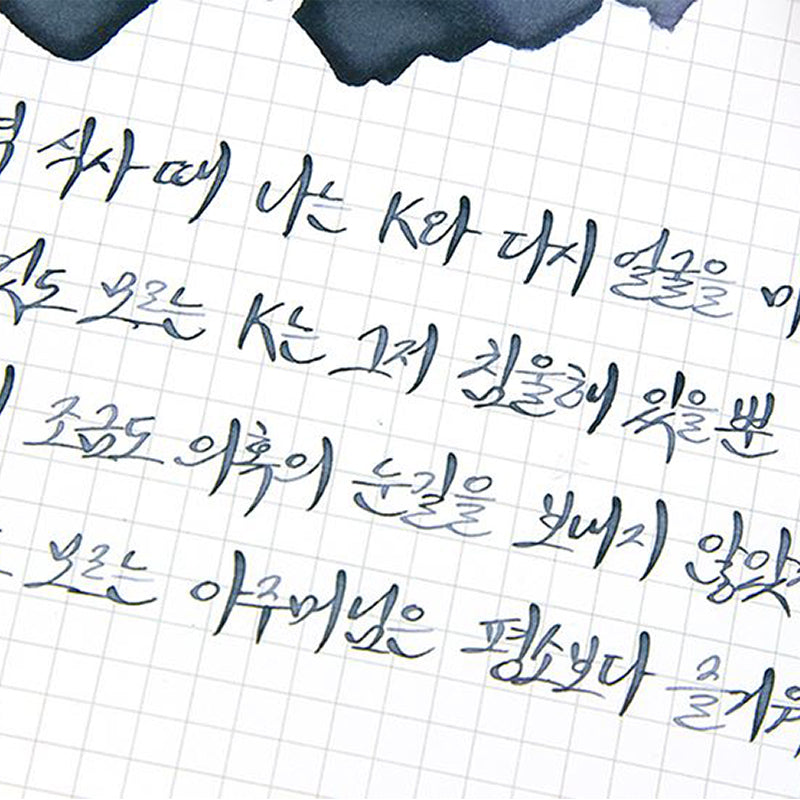 식사 때 나는 K와 다시 얼굴을
모르는 K는 그저 침울해 있을 뿐
조금도 의혹의 눈길을 보내지 않았
모르는 아주머님은 평소보다 즐거